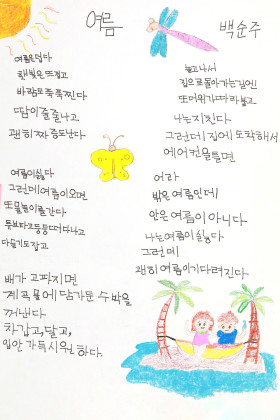 여름
백순주
여름은 덥다
햇빛은 뜨겁고
바람도 축 쭉 찐다
땀이 줄줄 나고
괜히 짜증도 난다
여름이 싫다
그런데 여름이 오면
또 물놀이를 간다
튜브 타고 둥둥 떠다니고
다슬기도 잡고
배가 고파지면
계곡물에 담가둔 수박을
꺼낸다
차갑고, 달고,
입안 가득 시원하다.
놀고 나서
집으로 돌아가는 길엔
또 더위가 따라붙고
나는 지친다
그런데 집에 도착해서
에어컨을 틀면
어라
밖은 여름인데
안은 여름이 아니다
나는 여름이 싫다
그런데
괜히 여름이 기다려진다